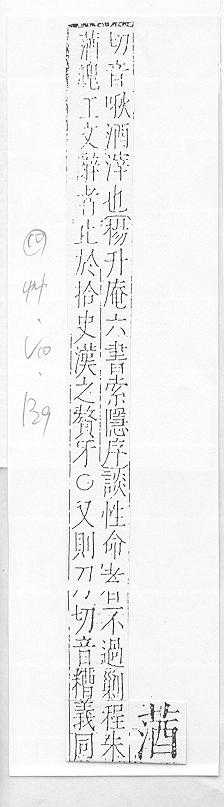 蒏
切音啾酒滓也楊升庵六書索隱序談性命者不過剿程朱
蒏魄工文辭者止於拾史漢之贅牙○又則刀切音糟義同
艸.10.139